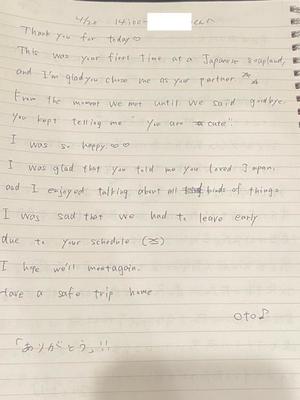 4/20 14:00~
Thank you for today♡
This was your first time at a Japanese soapland,
and I'm glad you chose me as your partner ☆☆
From the moment we met until we said goodbye,
you kept telling me "You are cute".
I was so happy ♡♡
I was glad that you told me you loved Japan,
and I enjoyed talking about all kinds of things.
I was sad that we had to leave early
due to your schedule (>_<)
I hope we'll meet again.
Have a safe trip home
oto♪
「ありがとう」!!